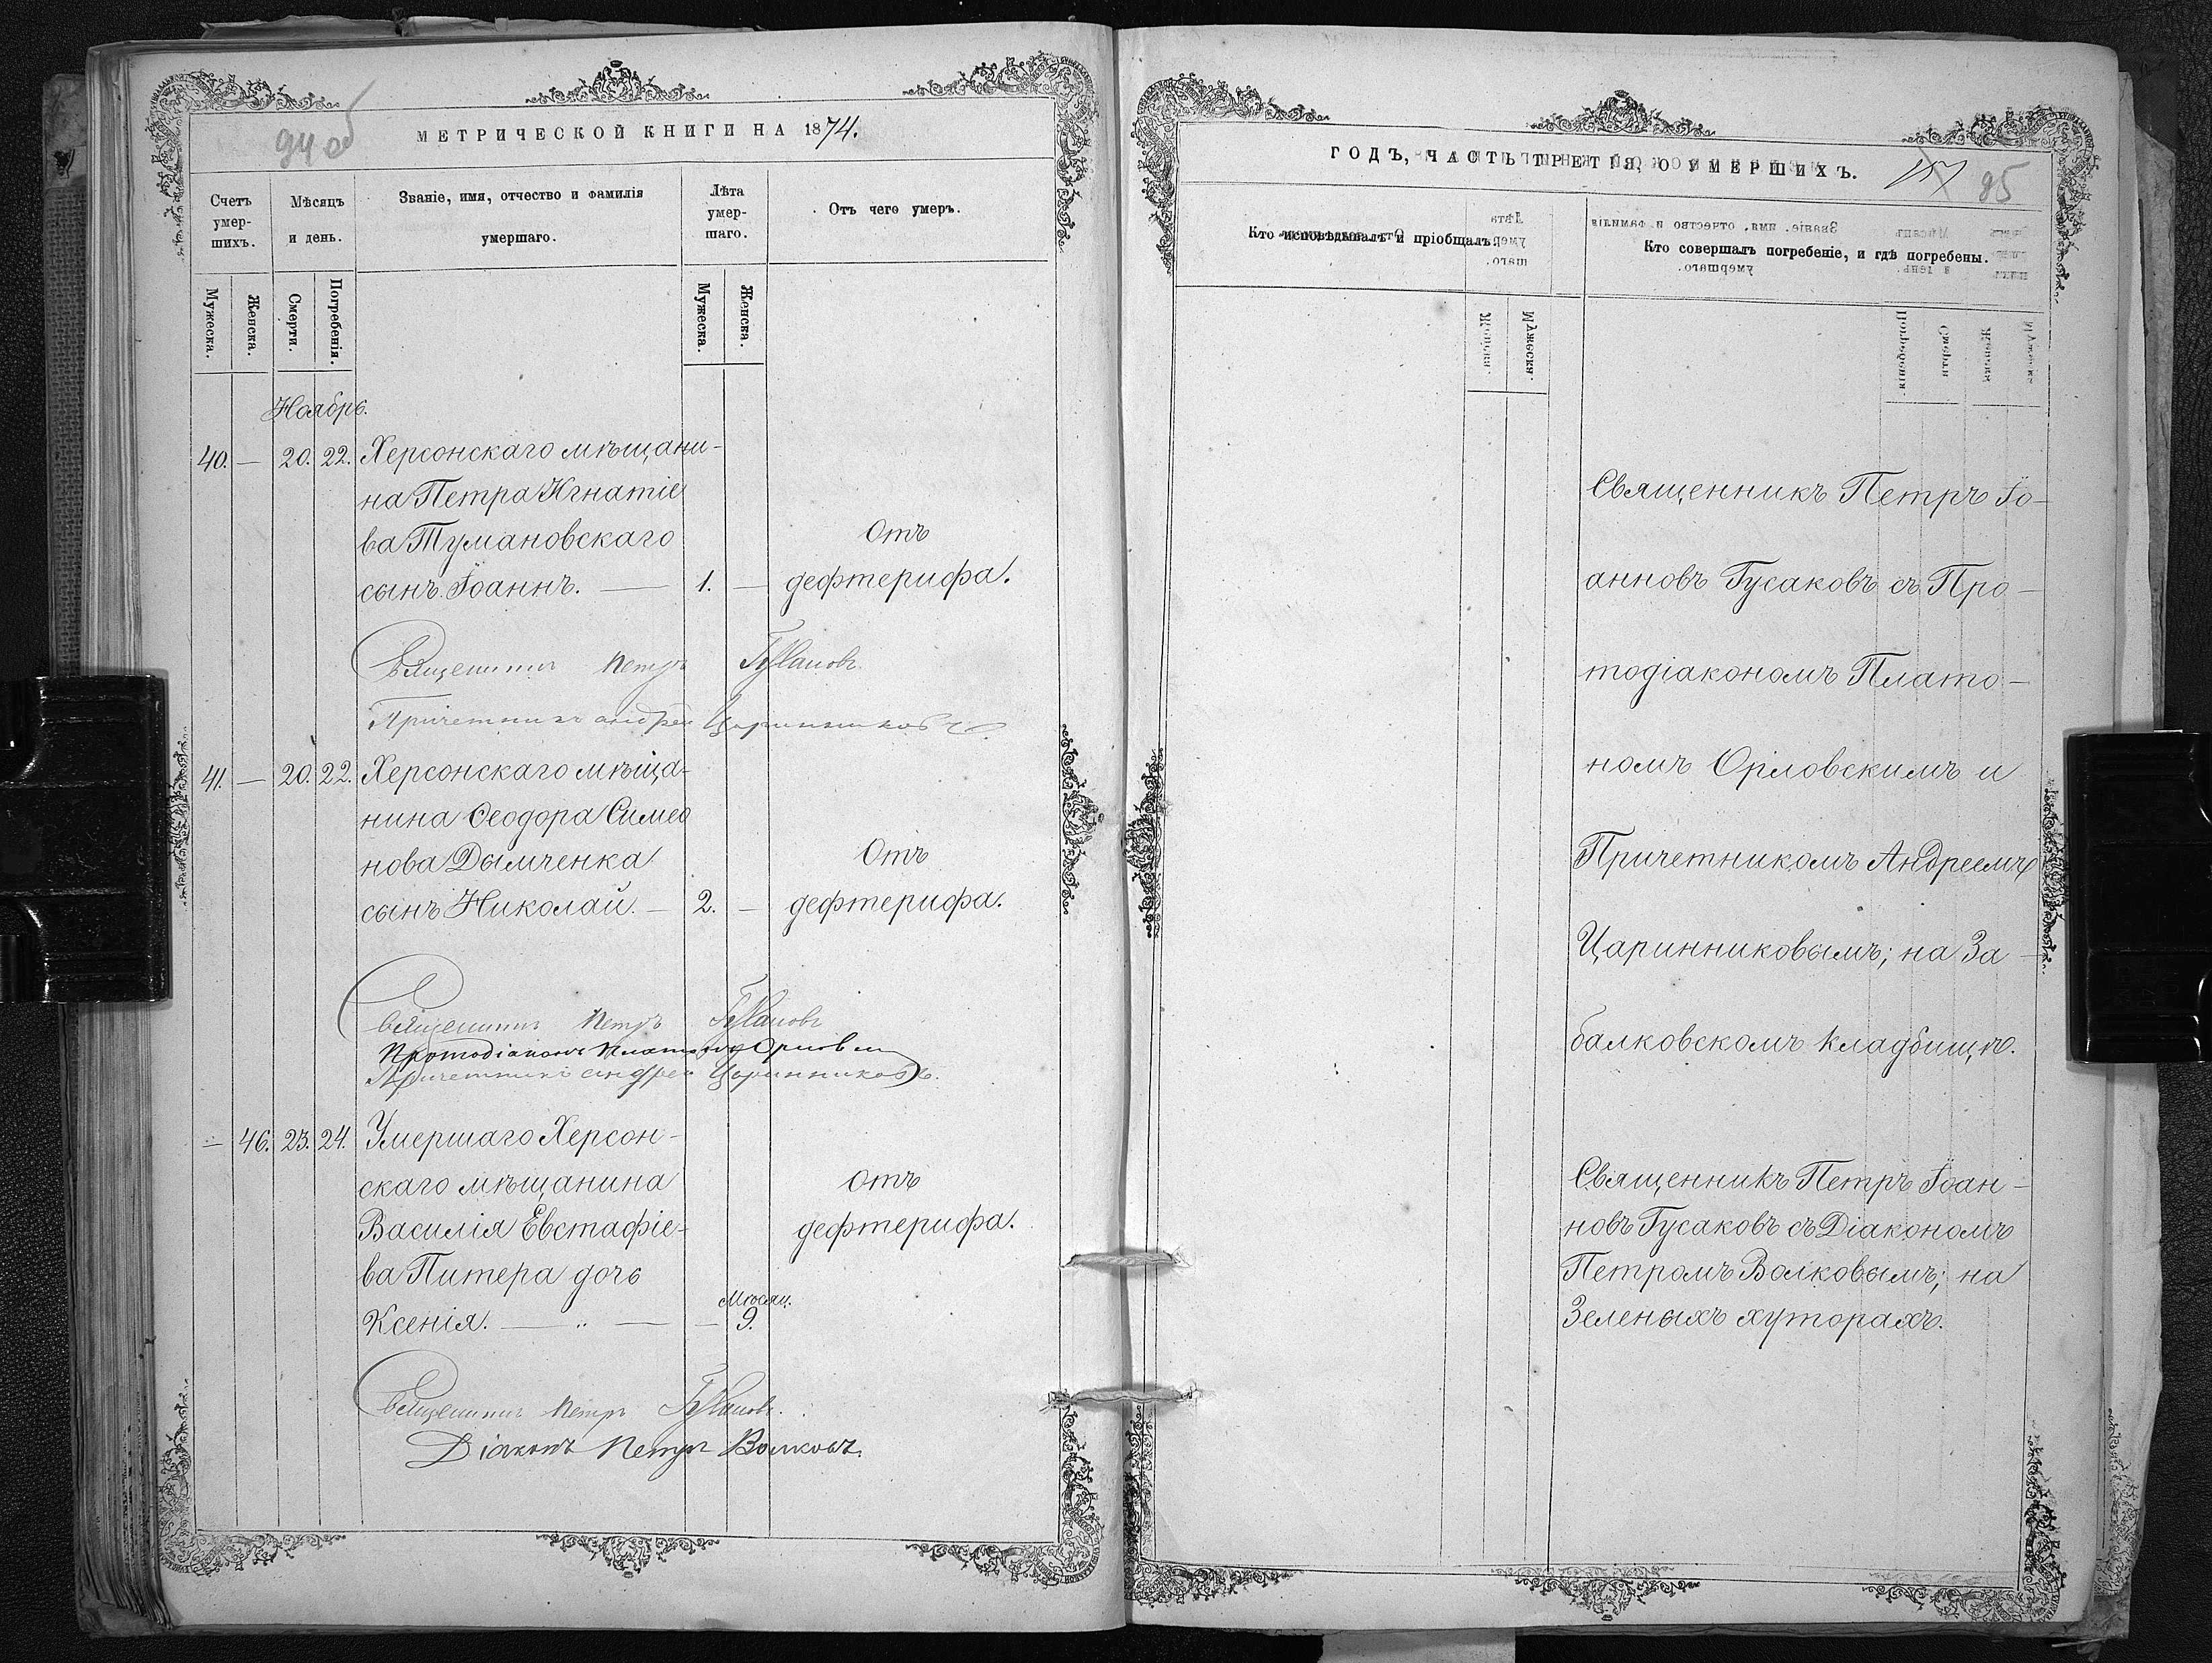 94 об
МЕТРИЧЕСКОЙ КНИГИ НА 1874.
Счетъ умер-шихъ.
Мѣсяцъ и день.
Званіе, имя, отчество и фамилія умершаго.
Лѣта умер-шаго.
Отъ чего умеръ.
Мужеска.
Женска.
Смерти.
Погребенія.
Мужеска.
Женска.
Ноябрь.
40. — 20. 22. Херсонскаго мѣщани-
на Петра Игнатіе
ва Тумановскаго
Отъ
сынъ Іоаннъ. — 1. — дефтерифа.
Священникъ Петръ Гусаковъ
Причетникъ Андрей Царинниковъ.
41. — 20. 22. Херсонскаго мѣща-
нина Ѳеодора Симео
нова Дымченка
Отъ
сынъ Николай. — 2. — дефтерифа.
Священникъ Петръ Гусаковъ
Протодіаконъ Платонъ Орловскій
Причетникъ Андрей Царинниковъ.
— 46. 23. 24. Умершаго Херсон-
скаго мѣщанина
Отъ
Василія Евстафіе-
дефтерифа.
ва Питера дочь
Мѣсяц.
Ксенія. — „ — — 9.
Священникъ Петръ Гусаковъ.
Діаконъ Петръ Волковъ.
ГОДЪ, ЧАСТЬ ТРЕТІЯ, О УМЕРШИХЪ.
95
Кто исповѣдывалъ и пріобщалъ.
Кто совершалъ погребеніе, и гдѣ погребены.
Священникъ Петръ Іо-
анновъ Гусаковъ съ Про-
тодіакономъ Плато-
номъ Орловскимъ и
Причетникомъ Андреемъ
Царинниковымъ; на За-
балковскомъ кладбищѣ.
Священникъ Петръ Іоан-
новъ Гусаковъ съ Діакономъ
Петромъ Волковымъ; на
Зеленыхъ хуторахъ.